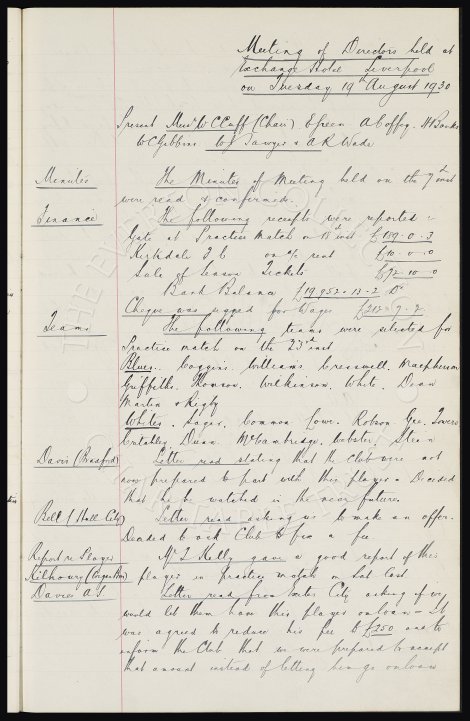 Meeting of Directors held at
Exchange Hotel Liverpool
on Tuesday 19th August 1930
Present Messrs W C Cuff (Chair) E Green A Coffey. H Banks
W C Gibbins W J Sawyer & A R Wade
Minutes The Minutes of Meeting held on the 7th inst
were read & confirmed.
Finance The following receipts were reported :-
Gate at Practice Match on 18th inst £159-0-3
Kirkdale F.C on a/c rent £10-0-0
Sale of Season Tickets £92-10-0
Bank Balance £19,952-13-2 Dr
Cheque was signed for Wages £212-7-7
Teams The following teams were selected for
Practice match on the 23rd inst
Blues. Coggins. Williams. Cresswell. Macpherson
Griffiths. Thomson. Wilkinson. White. Dunn
Martin & Rigby
Whites. Sagar. Common Lowe. Robson Gee. Towers
Critchley. Dunn. McCambridge. Webster. Stein
Davis (Bradford) Letter read stating that the Club were not
now prepared to part with this player. Decided
that he be watched in the near future.
Bell (Hull City) Letter read asking us to make an offer.
Decided to ask Club to fix a fee
Report re Player Mr T Kelly gave a good report of this
Kilhoury player in practice match on Sat last
Davies A L Letter read from City asking if we
would let them have this player on loan - It
was agreed to reduce his fee to £250 and to
inform the Club that we were prepared to accept
that amount instead of letting him go on loan